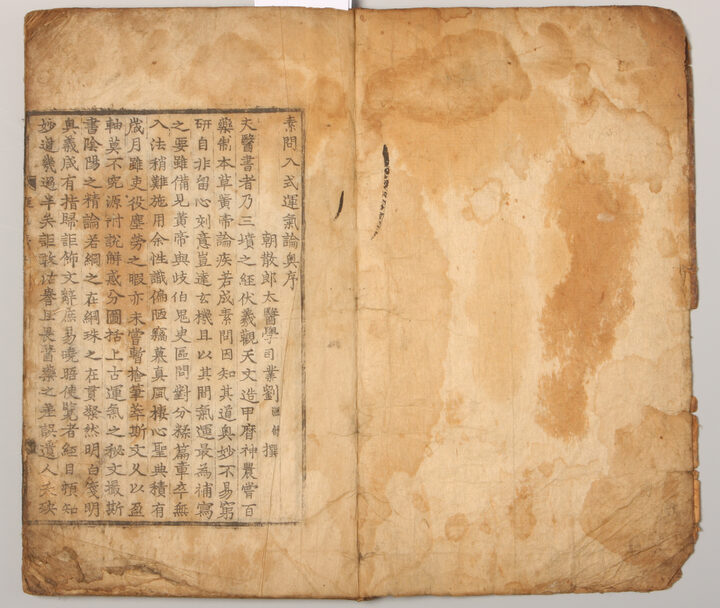 素問入式運氣論奧序
朝散郎太醫學司業劉 溫舒 撰
夫醫書者乃三墳之經伏羲觀天文造甲曆神農嘗百
藥制本草黃帝論疾苦成素問因知其道奧妙不易窮
研自非留心刻意豈達玄機且以其間氣運最為補寫
之要雖備見黃帝與歧伯鬼臾區問對分糅篇章卒無
入法稍難施用余性識偏陋竊慕真風棲心聖典積有
歲月雖吏役塵勞之暇亦未嘗暫捨筆萃斯文乆以盈
軸莫不究源附說解惑分圖括上古運氣之秘文撮斯
書陰陽之精論若網之在綱珠之在貫粲然明白箋明
奧義咸有指歸詎飾文辭庶易曉晤使覽者經目頓知
妙道幾過半矣詎敢沽譽且畏醫藥之差誤遺人夭殃